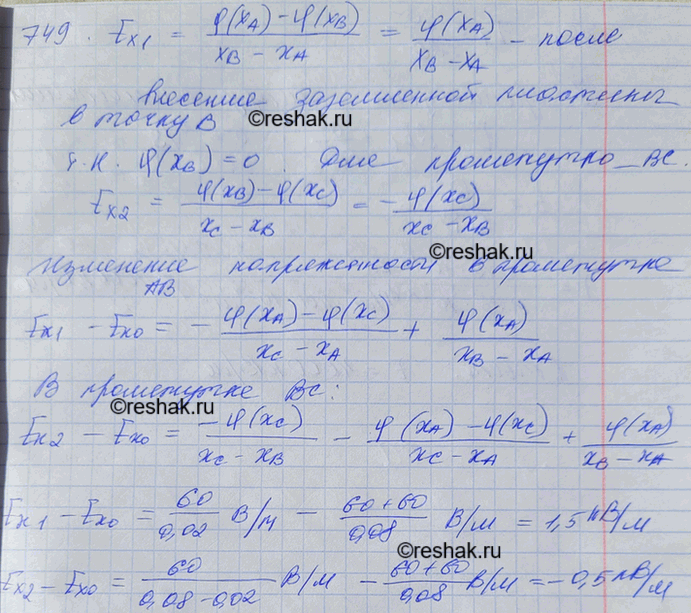 749. Ex1 = φ(xA) – φ(xB) / xB – xA = φ(xA) / xB – xA – после
внесение заземленной пластины
в точку B
©reshak.ru
т.к. φ(xB) = 0. Для промежутка BC.
Ex2 = φ(xB) – φ(xC) / xC – xB = – φ(xC) / xC – xB
©reshak.ru
Изменение напряженности в промежутке
AB
Ex1 – Ex0 = – φ(xA) – φ(xC) / xC – xA + φ(xA) / xB – xA
В промежутке BC:
©reshak.ru
Ex2 – Ex0 = –φ(xC) / xC – xB – φ(xA) – φ(xC) / xC – xA + φ(xA) / xB – xA
Ex1 – Ex0 = 60 / 0,02 В/м – 60+60 / 0,08 В/м = 1,5 кВ/м
©reshak.ru
Ex2 – Ex0 = 60 / 0,08 – 0,02 В/м – 60+60 / 0,08 В/м = –0,5 кВ/м